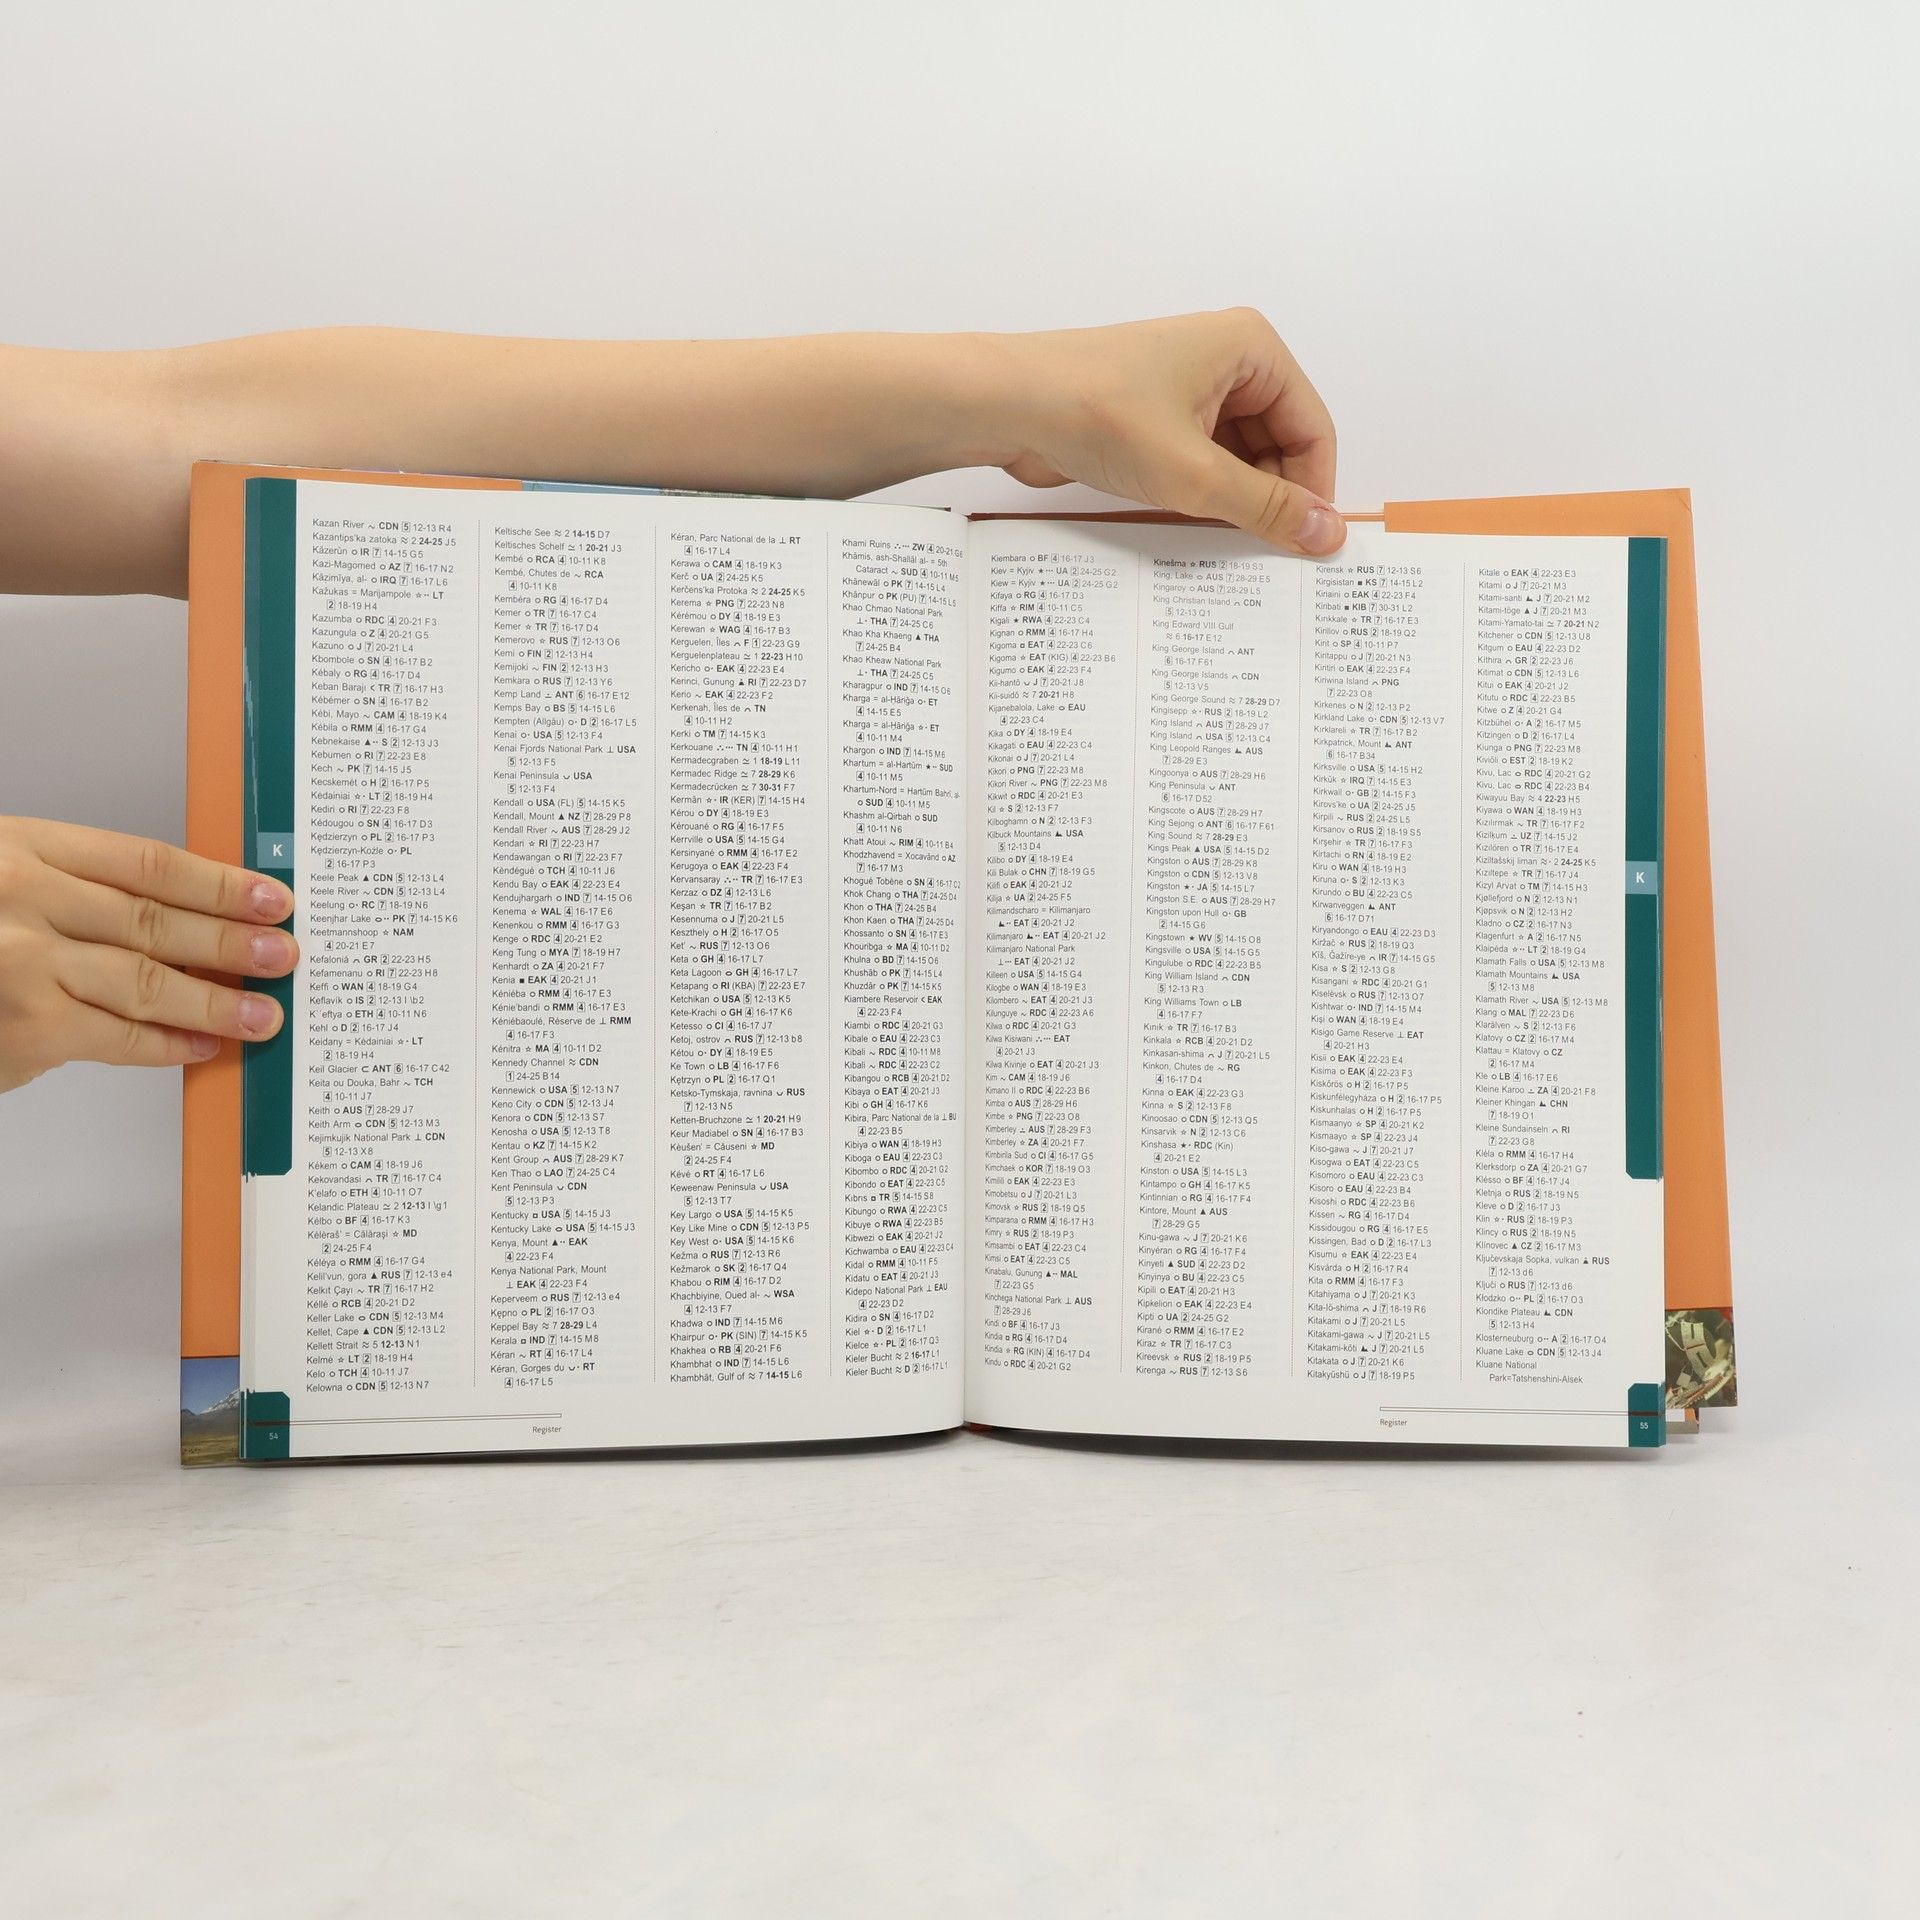 Kazan River ~ CDN 5 12-13 R4
Kazantips'ka zatoka ≈ 2 24-25 J5
Kāzerūn o IR 7 14-15 G5
Kazi-Magomed o AZ 7 16-17 N2
Kāzimīya, al- o IRQ 7 16-17 L6
Kažukas = Marijampole ☆·· LT
2 18-19 H4
Kazumba o RDC 4 20-21 F3
Kazungula o Z 4 20-21 G5
Kazuno o J 7 20-21 L4
Kbombole o SN 4 16-17 B2
Kébaly o RG 4 16-17 D4
Keban Barajı < TR 7 16-17 H3
Kébémer o SN 4 16-17 B2
Kébi, Mayo ~ CAM 4 18-19 K4
Kébila o RMM 4 16-17 G4
Kebnekaise ▲·· S 2 12-13 J3
Kebumen o RI 7 22-23 E8
Kech ~ PK 7 14-15 J5
Kecskemét o H 2 16-17 P5
Kėdainiai ☆· LT 2 18-19 H4
Kediri o RI 7 22-23 F8
Kédougou o SN 4 16-17 D3
Kędzierzyn o PL 2 16-17 P3
Kędzierzyn-Koźle o· PL
2 16-17 P3
Keele Peak ▲ CDN 5 12-13 L4
Keele River ~ CDN 5 12-13 L4
Keelung o· RC 7 18-19 N6
Keenjhar Lake o·· PK 7 14-15 K6
Keetmannshoop ☆ NAM
4 20-21 E7
Kefaloniá ^ GR 2 22-23 H5
Kefamenanu o RI 7 22-23 H8
Keffi o WAN 4 18-19 G4
Keflavik o IS 2 12-13 I \b2
K´´eftya o ETH 4 10-11 N6
Kehl o D 2 16-17 J4
Keidany = Kėdainiai ☆· LT
2 18-19 H4
Keil Glacier ⊂ ANT 6 16-17 C42
Keita ou Douka, Bahr ~ TCH
4 10-11 J7
Keith o AUS 7 28-29 J7
Keith Arm o CDN 5 12-13 M3
Kejimkujik National Park ⊥ CDN
5 12-13 X8
Kékem o CAM 4 18-19 J6
Kekovandasi ^ TR 7 16-17 C4
K'elafo o ETH 4 10-11 O7
Kelandic Plateau ≃ 2 12-13 I \g1
Kélbo o BF 4 16-17 K3
Kèlèraš' = Călăraşi ☆ MD
2 24-25 F4
Kéléya o RMM 4 16-17 G4
Kelil'vun, gora ▲ RUS 7 12-13 e4
Kelkit Çayı ~ TR 7 16-17 H2
Kéllé o RCB 4 20-21 D2
Keller Lake o CDN 5 12-13 M4
Kellet, Cape ▲ CDN 5 12-13 L2
Kellett Strait ≈ 5 12-13 N1
Kelmė ☆ LT 2 18-19 H4
Kelo o TCH 4 10-11 J7
Kelowna o CDN 5 12-13 N7
Keltische See ≈ 2 14-15 D7
Keltisches Schelf ≃ 1 20-21 J3
Kembé o RCA 4 10-11 K8
Kembé, Chutes de ~ RCA
4 10-11 K8
Kembéra o RG 4 16-17 D4
Kemer o TR 7 16-17 C4
Kemer ☆ TR 7 16-17 D4
Kemerovo ☆ RUS 7 12-13 O6
Kemi o FIN 2 12-13 H4
Kemijoki ~ FIN 2 12-13 H3
Kemkara o RUS 7 12-13 Y6
Kemp Land ⊥ ANT 6 16-17 E12
Kemps Bay o BS 5 14-15 L6
Kempten (Allgäu) o· D 2 16-17 L5
Kenai o· USA 5 12-13 F4
Kenai Fjords National Park ⊥ USA
5 12-13 F5
Kenai Peninsula ⌣ USA
5 12-13 F4
Kendall o USA (FL) 5 14-15 K5
Kendall, Mount ▲ NZ 7 28-29 P8
Kendall River ~ AUS 7 28-29 J2
Kendari ☆ RI 7 22-23 H7
Kendawangan o RI 7 22-23 F7
Kèndégué o TCH 4 10-11 J6
Kendu Bay o EAK 4 22-23 E4
Kendujhargarh o IND 7 14-15 O6
Kenema ☆ WAL 4 16-17 E6
Kenenkou o RMM 4 16-17 G3
Kenge o RDC 4 20-21 E2
Keng Tung o MYA 7 18-19 H7
Kenhardt o ZA 4 20-21 F7
Kenia ■ EAK 4 20-21 J1
Kéniéba o RMM 4 16-17 E3
Kénie'bandi o RMM 4 16-17 E3
Kéniébaoulé, Réserve de ⊥ RMM
4 16-17 F3
Kénitra ☆ MA 4 10-11 D2
Kennedy Channel ≈ CDN
1 24-25 B14
Kennewick o USA 5 12-13 N7
Keno City o CDN 5 12-13 J4
Kenora o CDN 5 12-13 S7
Kenosha o USA 5 12-13 T8
Kentau o KZ 7 14-15 K2
Kent Group ^ AUS 7 28-29 K7
Ken Thao o LAO 7 24-25 C4
Kent Peninsula ⌣ CDN
5 12-13 P3
Kentucky ◻ USA 5 14-15 J3
Kentucky Lake o USA 5 14-15 J3
Kenya, Mount ▲·· EAK
4 22-23 F4
Kenya National Park, Mount
⊥ EAK 4 22-23 F4
Keperveem o RUS 7 12-13 e4
Kępno o PL 2 16-17 O3
Keppel Bay ≈ 7 28-29 L4
Kerala ◻ IND 7 14-15 M8
Kéran ~ RT 4 16-17 L4
Kéran, Gorges du ⌣· RT
4 16-17 L5
Kéran, Parc National de la ⊥ RT
4 16-17 L4
Kerawa o CAM 4 18-19 K3
Kerč o UA 2 24-25 K5
Kerčens'ka Protoka ≈ 2 24-25 K5
Kerema ☆ PNG 7 22-23 N8
Kérémou o DY 4 18-19 E3
Kerewan ☆ WAG 4 16-17 B3
Kerguelen, Îles ^ F 1 22-23 G9
Kerguelenplateau ≃ 1 22-23 H10
Kericho o· EAK 4 22-23 E4
Kerinci, Gunung ▲ RI 7 22-23 D7
Kerio ~ EAK 4 22-23 F2
Kerkenah, Îles de ^ TN
4 10-11 H2
Kerki o TM 7 14-15 K3
Kerkouane ∴··· TN 4 10-11 H1
Kermadecgraben ≃ 1 18-19 L11
Kermadec Ridge ≃ 7 28-29 K6
Kermadecrücken ≃ 7 30-31 F7
Kermān ☆· IR (KER) 7 14-15 H4
Kérou o DY 4 18-19 E3
Kérouané o RG 4 16-17 F5
Kerrville o USA 5 14-15 G4
Kersinyané o RMM 4 16-17 E2
Kerugoya o EAK 4 22-23 F4
Kervansaray ∴·· TR 7 16-17 E3
Kerzaz o DZ 4 12-13 L6
Keşan ☆ TR 7 16-17 B2
Kesennuma o J 7 20-21 L5
Keszthely o H 2 16-17 O5
Ket' ~ RUS 7 12-13 O6
Keta o GH 4 16-17 L7
Keta Lagoon o GH 4 16-17 L7
Ketapang o RI (KBA) 7 22-23 E7
Ketchikan o USA 5 12-13 K5
Kete-Krachi o GH 4 16-17 K6
Ketesso o CI 4 16-17 J7
Ketoj, ostrov ^ RUS 7 12-13 b8
Kétou o· DY 4 18-19 E5
Ke Town o LB 4 16-17 F6
Kętrzyn o PL 2 16-17 Q1
Ketsko-Tymskaja, ravnina ⌣ RUS
7 12-13 N5
Ketten-Bruchzone ≃ 1 20-21 H9
Keur Madiabel o SN 4 16-17 B3
Kèušen' = Căuseni ☆ MD
2 24-25 F4
Kévé o RT 4 16-17 L6
Keweenaw Peninsula ⌣ USA
5 12-13 T7
Key Largo o USA 5 14-15 K5
Key Like Mine o CDN 5 12-13 P5
Key West o· USA 5 14-15 K6
Kežma o RUS 7 12-13 R6
Kežmarok o SK 2 16-17 Q4
Khabou o RIM 4 16-17 D2
Khachbiyine, Oued al- ~ WSA
4 12-13 F7
Khadwa o IND 7 14-15 M6
Khairpur o· PK (SIN) 7 14-15 K5
Khakhea o RB 4 20-21 F6
Khambhat o IND 7 14-15 L6
Khambhāt, Gulf of ≈ 7 14-15 L6
Khami Ruins ∴··· ZW 4 20-21 G6
Khāmis, ash-Shallāl al- = 5th
Cataract ~ SUD 4 10-11 M5
Khānewāl o PK 7 14-15 L4
Khānpur o PK (PU) 7 14-15 L5
Khao Chmao National Park
⊥· THA 7 24-25 C6
Khao Kha Khaeng ▲ THA
7 24-25 B4
Khao Kheaw National Park
⊥· THA 7 24-25 C5
Kharagpur o IND 7 14-15 O6
Kharga = al-Ḫāriğa o· ET
4 14-15 E5
Kharga = al-Ḫāriğa ☆· ET
4 10-11 M4
Khargon o IND 7 14-15 M6
Khartum = al-Ḫarṭūm ★·· SUD
4 10-11 M5
Khartum-Nord = Harṭūm Baḥrī, al-
o SUD 4 10-11 M5
Khashm al-Qirbah o SUD
4 10-11 N6
Khatt Atoui ~ RIM 4 10-11 B4
Khodzhavend = Xocavänd o AZ
7 16-17 M3
Khogué Tobène o SN 4 16-17 C2
Khok Chang o THA 7 24-25 D4
Khon o THA 7 24-25 B4
Khon Kaen o THA 7 24-25 D4
Khossanto o SN 4 16-17 E3
Khouribga ☆ MA 4 10-11 D2
Khulna o BD 7 14-15 O6
Khushāb o PK 7 14-15 L4
Khuzdār o PK 7 14-15 K5
Kiambere Reservoir < EAK
4 22-23 F4
Kiambi o RDC 4 20-21 G3
Kibale o EAU 4 22-23 C3
Kibali ~ RDC 4 10-11 M8
Kibali ~ RDC 4 22-23 C2
Kibangou o RCB 4 20-21 D2
Kibaya o EAT 4 20-21 J3
Kibi o GH 4 16-17 K6
Kibira, Parc National de la ⊥ BU
4 22-23 B5
Kibiya o WAN 4 18-19 H3
Kiboga o EAU 4 22-23 C3
Kibombo o RDC 4 20-21 G2
Kibondo o EAT 4 22-23 C5
Kıbrıs ◻ TR 5 14-15 S8
Kibungo o RWA 4 22-23 C5
Kibuye o RWA 4 22-23 B5
Kibwezi o EAK 4 20-21 J2
Kichwamba o EAU 4 22-23 C4
Kidal o RMM 4 10-11 F5
Kidatu o EAT 4 20-21 J3
Kidepo National Park ⊥ EAU
4 22-23 D2
Kidira o SN 4 16-17 D2
Kiel ☆· D 2 16-17 L1
Kielce ☆· PL 2 16-17 Q3
Kieler Bucht ≈ 2 16-17 L1
Kieler Bucht ≈ D 2 16-17 L1
54
Register
K
Kiembara o BF 4 16-17 J3
Kiev = Kyjiv ★··· UA 2 24-25 G2
Kiew = Kyjiv ★··· UA 2 24-25 G2
Kifaya o RG 4 16-17 D3
Kiffa ☆ RIM 4 10-11 C5
Kigali ★ RWA 4 22-23 C4
Kignan o RMM 4 16-17 H4
Kigoma ◻ EAT 4 22-23 C6
Kigoma ☆ EAT (KIG) 4 22-23 B6
Kigumo o EAK 4 22-23 F4
Kii-hantō ⌣ J 7 20-21 J8
Kii-suidō ≈ 7 20-21 H8
Kijanebalola, Lake o EAU
4 22-23 C4
Kika o DY 4 18-19 E4
Kikagati o EAU 4 22-23 C4
Kikonai o J 7 20-21 L4
Kikori o PNG 7 22-23 M8
Kikori River ~ PNG 7 22-23 M8
Kikwit o RDC 4 20-21 E3
Kil ☆ S 2 12-13 F7
Kilboghamn o N 2 12-13 F3
Kilbuck Mountains ▲ USA
5 12-13 D4
Kilibo o DY 4 18-19 E4
Kili Bulak o CHN 7 18-19 G5
Kilifi o EAK 4 20-21 J2
Kilija ☆ UA 2 24-25 F5
Kilimandscharo = Kilimanjaro
▲·· EAT 4 20-21 J2
Kilimanjaro ▲·· EAT 4 20-21 J2
Kilimanjaro National Park
⊥··· EAT 4 20-21 J2
Kileen o USA 5 14-15 G4
Kilogbe o WAN 4 18-19 E3
Kilombero ~ EAT 4 20-21 J3
Kilunguye ~ RDC 4 22-23 A6
Kilwa o RDC 4 20-21 G3
Kilwa Kisiwani ∴··· EAT
4 20-21 J3
Kilwa Kivinje o EAT 4 20-21 J3
Kim ~ CAM 4 18-19 J6
Kimano II o RDC 4 22-23 B6
Kimba o AUS 7 28-29 H6
Kimbe ☆ PNG 7 22-23 O8
Kimberley ⊥ AUS 7 28-29 F3
Kimberley ☆ ZA 4 20-21 F7
Kimbirila Sud o CI 4 16-17 G5
Kimchaek o KOR 7 18-19 O3
Kimilili o EAK 4 22-23 E3
Kimobetsu o J 7 20-21 L3
Kimovsk ☆ RUS 2 18-19 Q5
Kimparana o RMM 4 16-17 H3
Kimry ☆ RUS 2 18-19 P3
Kimsambi o EAT 4 22-23 C4
Kimsi o EAT 4 22-23 C5
Kinabalu, Gunung ▲·· MAL
7 22-23 G5
Kinchega National Park ⊥ AUS
7 28-29 J6
Kindi o BF 4 16-17 J3
Kindia ◻ RG 4 16-17 D4
Kindia ☆ RG (KIN) 4 16-17 D4
Kindu o RDC 4 20-21 G2
Kinešma ☆ RUS 2 18-19 S3
King, Lake o AUS 7 28-29 E5
Kingaroy o AUS 7 28-29 L5
King Christian Island ^ CDN
5 12-13 Q1
King Edward VIII Gulf
≈ 6 16-17 E12
King George Island ^ ANT
6 16-17 F61
King George Islands ^ CDN
5 12-13 V5
King George Sound ≈ 7 28-29 D7
Kingisepp ☆· RUS 2 18-19 L2
King Island ^ AUS 7 28-29 J7
King Island ^ USA 5 12-13 C4
King Leopold Ranges ▲ AUS
7 28-29 E3
Kingoonya o AUS 7 28-29 H6
King Peninsula ⌣ ANT
6 16-17 D52
Kingscote o AUS 7 28-29 H7
King Sejong o ANT 6 16-17 F61
King Sound ≈ 7 28-29 E3
Kings Peak ▲ USA 5 14-15 D2
Kingston o AUS 7 28-29 K8
Kingston o CDN 5 12-13 V8
Kingston ★· JA 5 14-15 L7
Kingston S.E. o AUS 7 28-29 H7
Kingston upon Hull o· GB
2 14-15 G6
Kingstown ★ WV 5 14-15 O8
Kingsville o USA 5 14-15 G5
Kingulube o RDC 4 22-23 B5
King William Island ^ CDN
5 12-13 R3
King Williams Town o LB
4 16-17 F7
Kınık ☆ TR 7 16-17 B3
Kinkala ☆ RCB 4 20-21 D2
Kinkasan-shima ^ J 7 20-21 L5
Kinkon, Chutes de ~ RG
4 16-17 D4
Kinna o EAK 4 22-23 G3
Kinna ☆ S 2 12-13 F8
Kinoosao o CDN 5 12-13 Q5
Kinsarvik ☆ N 2 12-13 C6
Kinshasa ★· RDC (Kin)
4 20-21 E2
Kinston o USA 5 14-15 L3
Kintampo o GH 4 16-17 K5
Kintinnian o RG 4 16-17 F4
Kintore, Mount ▲ AUS
7 28-29 G5
Kinu-gawa ~ J 7 20-21 K6
Kinyéran o RG 4 16-17 F4
Kinyeti ▲ SUD 4 22-23 D2
Kinyinya o BU 4 22-23 C5
Kipili o EAT 4 20-21 H3
Kipkelion o EAK 4 22-23 E4
Kipti o UA 2 24-25 G2
Kirané o RMM 4 16-17 E2
Kiraz ☆ TR 7 16-17 C3
Kireevsk ☆ RUS 2 18-19 P5
Kirenga ~ RUS 7 12-13 S6
Kirensk ☆ RUS 7 12-13 S6
Kirgisistan ■ KS 7 14-15 L2
Kiriaini o EAK 4 22-23 F4
Kiribati ■ KIB 7 30-31 L2
Kırıkkale ☆ TR 7 16-17 E3
Kirillov o RUS 2 18-19 Q2
Kirit o SP 4 10-11 P7
Kiritappu o J 7 20-21 N3
Kiritiri o EAK 4 22-23 F4
Kiriwina Island ^ PNG
7 22-23 O8
Kirkenes o N 2 12-13 P2
Kirkland Lake o· CDN 5 12-13 V7
Kırklareli ☆ TR 7 16-17 B2
Kirkpatrick, Mount ▲ ANT
6 16-17 B34
Kirksville o USA 5 14-15 H2
Kirkūk ☆ IRQ 7 14-15 E3
Kirkwall o· GB 2 14-15 F3
Kirovs'ke o UA 2 24-25 J5
Kirpili ~ RUS 2 24-25 L5
Kirsanov o RUS 2 18-19 S5
Kırşehir ☆ TR 7 16-17 F3
Kirtachi o RN 4 18-19 E2
Kiru o WAN 4 18-19 H3
Kiruna o· S 2 12-13 K3
Kirundo o BU 4 22-23 C5
Kirwanveggen ▲ ANT
6 16-17 D71
Kiryandongo o EAU 4 22-23 D3
Kiržač ☆ RUS 2 18-19 Q3
Kīš, Ǧazīre-ye ^ IR 7 14-15 G5
Kisa ☆ S 2 12-13 G8
Kisangani ☆ RDC 4 20-21 G1
Kiselëvsk o RUS 7 12-13 O7
Kishtwar o· IND 7 14-15 M4
Kişi o WAN 4 18-19 E4
Kisigo Game Reserve ⊥ EAT
4 20-21 H3
Kisii o EAK 4 22-23 E4
Kisima o EAK 4 22-23 F3
Kiskőrös o H 2 16-17 P5
Kiskunfélegyháza o H 2 16-17 P5
Kiskunhalas o H 2 16-17 P5
Kismaanyo ☆ SP 4 20-21 K2
Kismaayo ☆ SP 4 22-23 J4
Kiso-gawa ~ J 7 20-21 J7
Kisogwa o EAT 4 22-23 C5
Kisomoro o EAU 4 22-23 C3
Kisoro o EAU 4 22-23 B4
Kisoshi o RDC 4 22-23 B6
Kissen ~ RG 4 16-17 D4
Kissidougou o RG 4 16-17 E5
Kissingen, Bad o D 2 16-17 L3
Kisumu ☆ EAK 4 22-23 E4
Kisvárda o H 2 16-17 R4
Kita o RMM 4 16-17 F3
Kitahiyama o J 7 20-21 K3
Kita-Iō-shima ^ J 7 18-19 R6
Kitakami o J 7 20-21 L5
Kitakami-gawa ~ J 7 20-21 L5
Kitakami-kōti ▲ J 7 20-21 L5
Kitakata o J 7 20-21 K6
Kitakyūshū o J 7 18-19 P5
Kitale o EAK 4 22-23 E3
Kitami o J 7 20-21 M3
Kitami-santi ▲ J 7 20-21 M2
Kitami-tōge ▲ J 7 20-21 M3
Kitami-Yamato-tai ≃ 7 20-21 N2
Kitchener o CDN 5 12-13 U8
Kitgum o EAU 4 22-23 D2
Kithira ^ GR 2 22-23 J6
Kitimat o CDN 5 12-13 L6
Kitui o EAK 4 20-21 J2
Kitutu o RDC 4 22-23 B5
Kitwe o Z 4 20-21 G4
Kitzbühel o· A 2 16-17 M5
Kitzingen o D 2 16-17 L4
Kiunga o PNG 7 22-23 M8
Kiviõli o EST 2 18-19 K2
Kivu, Lac o RDC 4 20-21 G2
Kivu, Lac o RDC 4 22-23 B4
Kiwayuu Bay ≈ 4 22-23 H5
Kiyawa o WAN 4 18-19 H3
Kızılırmak ~ TR 7 16-17 F2
Kizilkum ⊥ UZ 7 14-15 J2
Kızılören o TR 7 16-17 E4
Kiziltašskij liman ≈· 2 24-25 K5
Kızıltepe ☆ TR 7 16-17 J4
Kizyl Arvat o TM 7 14-15 H3
Kjøllefjord o N 2 12-13 N1
Kjøpsvik o N 2 12-13 H3
Kladno o CZ 2 16-17 N3
Klagenfurt ☆ A 2 16-17 N5
Klaipėda ☆·· LT 2 18-19 G4
Klamath Falls o USA 5 12-13 M8
Klamath Mountains ▲ USA
5 12-13 M8
Klamath River ~ USA 5 12-13 M8
Klang o MAL 7 22-23 D6
Klarälven ~ S 2 12-13 F6
Klatovy o CZ 2 16-17 M4
Klattau = Klatovy o CZ
2 16-17 M4
Kle o LB 4 16-17 E6
Kleine Karoo ⊥ ZA 4 20-21 F8
Kleiner Khingan ▲ CHN
7 18-19 O1
Kleine Sundainseln ^ RI
7 22-23 G8
Kléla o RMM 4 16-17 H4
Klerksdorp o ZA 4 20-21 G7
Klésso o BF 4 16-17 J4
Kletnja o RUS 2 18-19 N5
Kleve o D 2 16-17 J3
Klin ☆· RUS 2 18-19 P3
Klincy o RUS 2 18-19 N5
Klínovec ▲ CZ 2 16-17 M3
Ključevskaja Sopka, vulkan ▲ RUS
7 12-13 d6
Ključi o RUS 7 12-13 d6
Kłodzko o·· PL 2 16-17 O3
Klondike Plateau ▲ CDN
5 12-13 J4
Klosterneuburg o·· A 2 16-17 O4
Kluane Lake o CDN 5 12-13 J4
Kluane National
Park=Tatshenshini-Alsek
K
Register
55